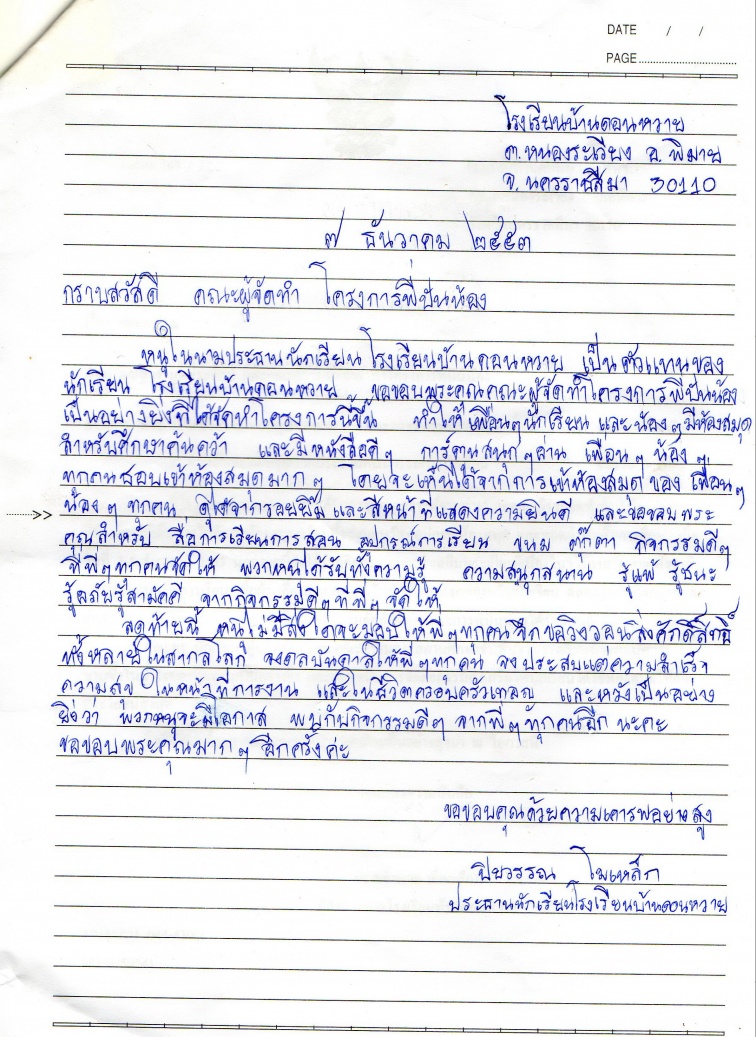 DATE / /
PAGE
โรงเรียนบ้านดอนหวาย
ต.หนองระเวียง อ.พิมาย
จ.นครราชสีมา 30110
๗ ธันวาคม ๒๕๕๓
กราบสวัสดี คณะผู้จัดทำ โครงการพี่ปันน้อง
หนูในนามประธานนักเรียน โรงเรียนบ้านดอนหวาย เป็นตัวแทนของ
นักเรียน โรงเรียนบ้านดอนหวาย ขอขอบพระคุณคณะผู้จัดทำโครงการพี่ปันน้อง
เป็นอย่างยิ่งที่ได้จัดทำโครงการนี้ขึ้น ทำให้เพื่อนๆนักเรียน และน้องๆมีห้องสมุด
สำหรับศึกษาค้นคว้า และมีหนังสือดีๆ การ์ตูนสนุกๆอ่าน เพื่อนๆ น้องๆ
ทุกคนชอบเข้าห้องสมุดมากๆ โดยจะเห็นได้จากการเข้าห้องสมุดของ เพื่อนๆ
น้องๆ ทุกคน ดูได้จากรอยยิ้ม และสีหน้าที่แสดงความยินดี และขอขอบพระ
>>
คุณสำหรับ สื่อการเรียนการสอน อุปกรณ์การเรียน ขนม ตุ๊กตา กิจกรรมดีๆ
ที่พี่ๆทุกคนจัดให้ พวกหนูได้รับทั้งความรู้ ความสนุกสนาน รู้แพ้ รู้ชนะ
รู้อภัยรู้สามัคคี จากกิจกรรมดีๆที่พี่ๆ จัดให้
สุดท้ายนี้ หนูไม่มีสิ่งใดจะมอบให้พี่ๆทุกคนจึกขอวิงวอนสิ่งศักดิ์สิทธิ์
ทั้งหลายในสากลโลก จงดลบันดาลให้พี่ๆทุกคน จงประสบแต่ความสำเร็จ
ความสุข ในหน้าที่การงาน และในชีวิตครอบครัวเทอญ และหวังเป็นอย่าง
ยิ่งว่า พวกหนูจะมีโอกาส พบกับกิจกรรมดีๆ จากพี่ๆทุกคนอีก นะคะ
ขอขอบพระคุณมากๆอีกครั้งค่ะ
ขอขอบคุณด้วยความเคารพอย่างสูง
ปิยวรรณ โมเหล็ก
ประธานนักเรียนโรงเรียนบ้านดอนหวาย